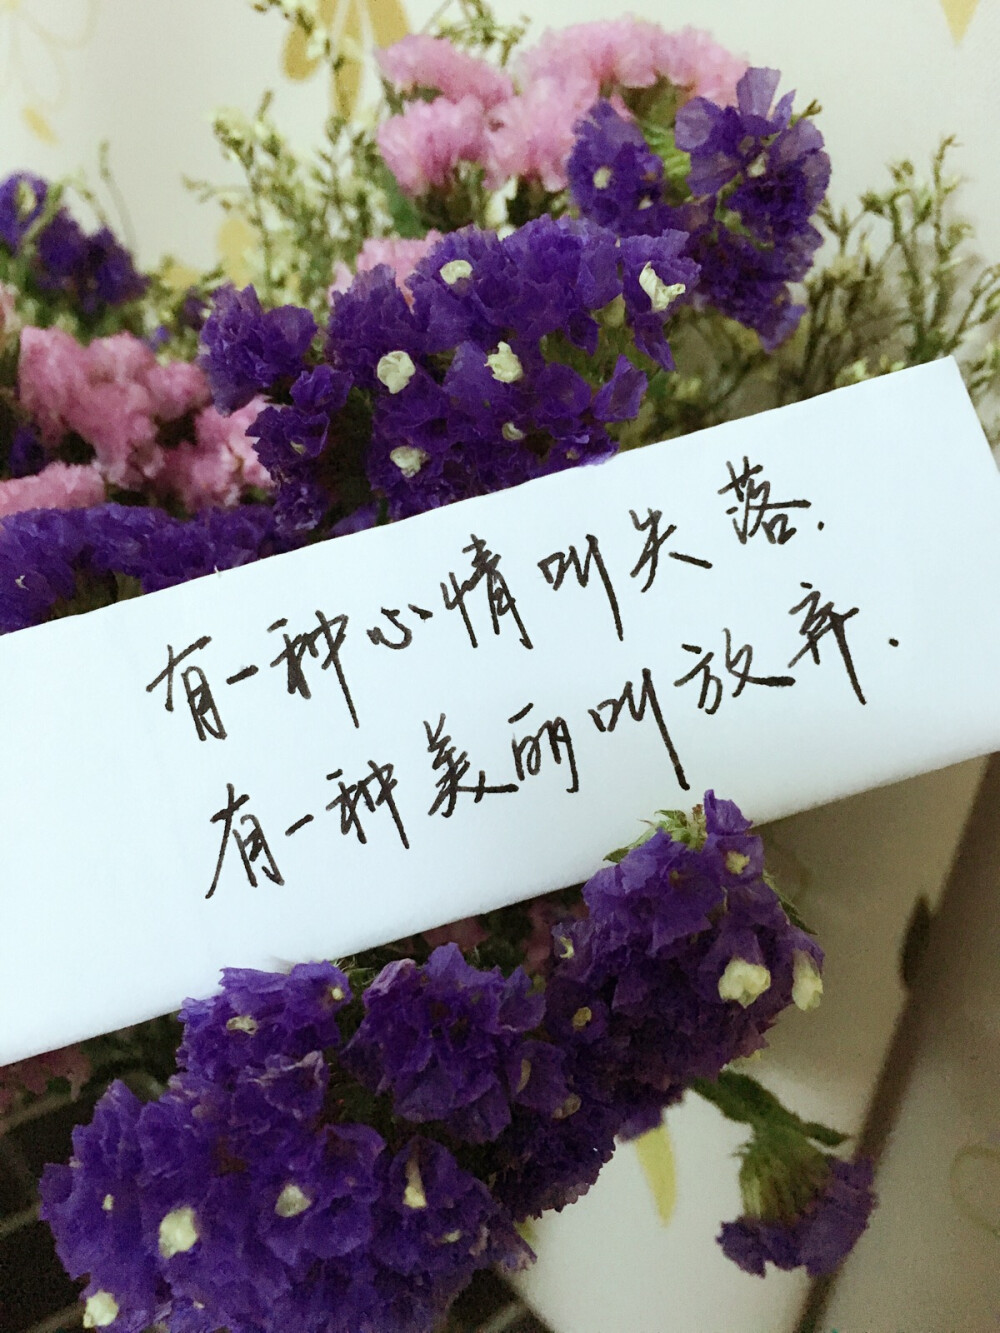 有一种心情叫失落.
有一种美丽叫放弃.